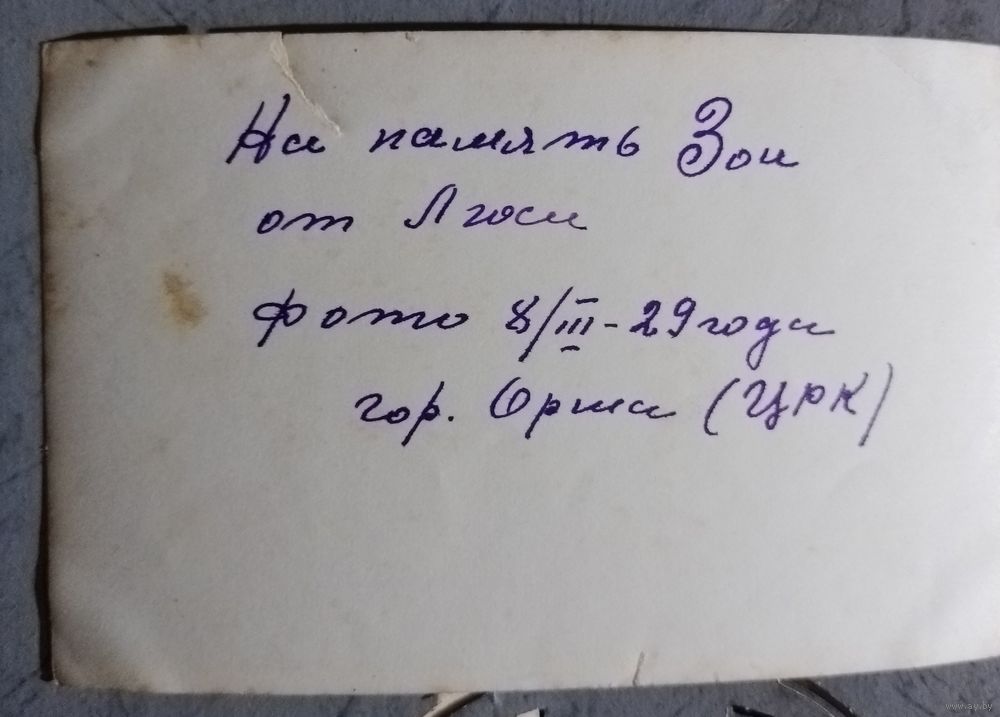 На память Зои
от Люси
фото 8/III-29 года
гор. Орша (ЦРК)
www.ay.by